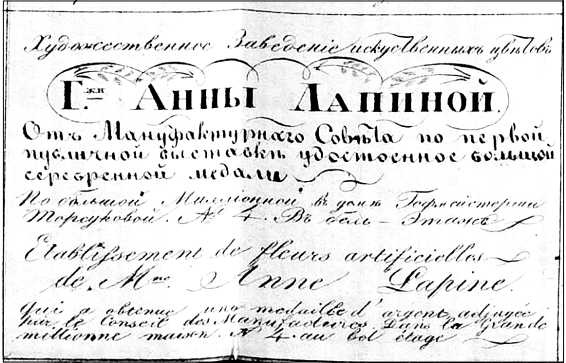 Художественное Заведенiе искуственныхъ цвѣтовъ
Г.жи Анны Лапиной.
Отъ Мануфактурнаго Совѣта по первой
публичной выставкѣ удостоенное большой
серебренной медали
По большой Миллiонной въ домѣ Гофмейстерши
Торсуковой № 4. Въ бель-Этажѣ
Etablissement de fleurs artificielles
de Mme Anne Lapine.
qui a obtenue une medaille d'argent adjugée
par le Conseil des Manufactures. Dans la Grande
millionne maison № 4 au bel étage